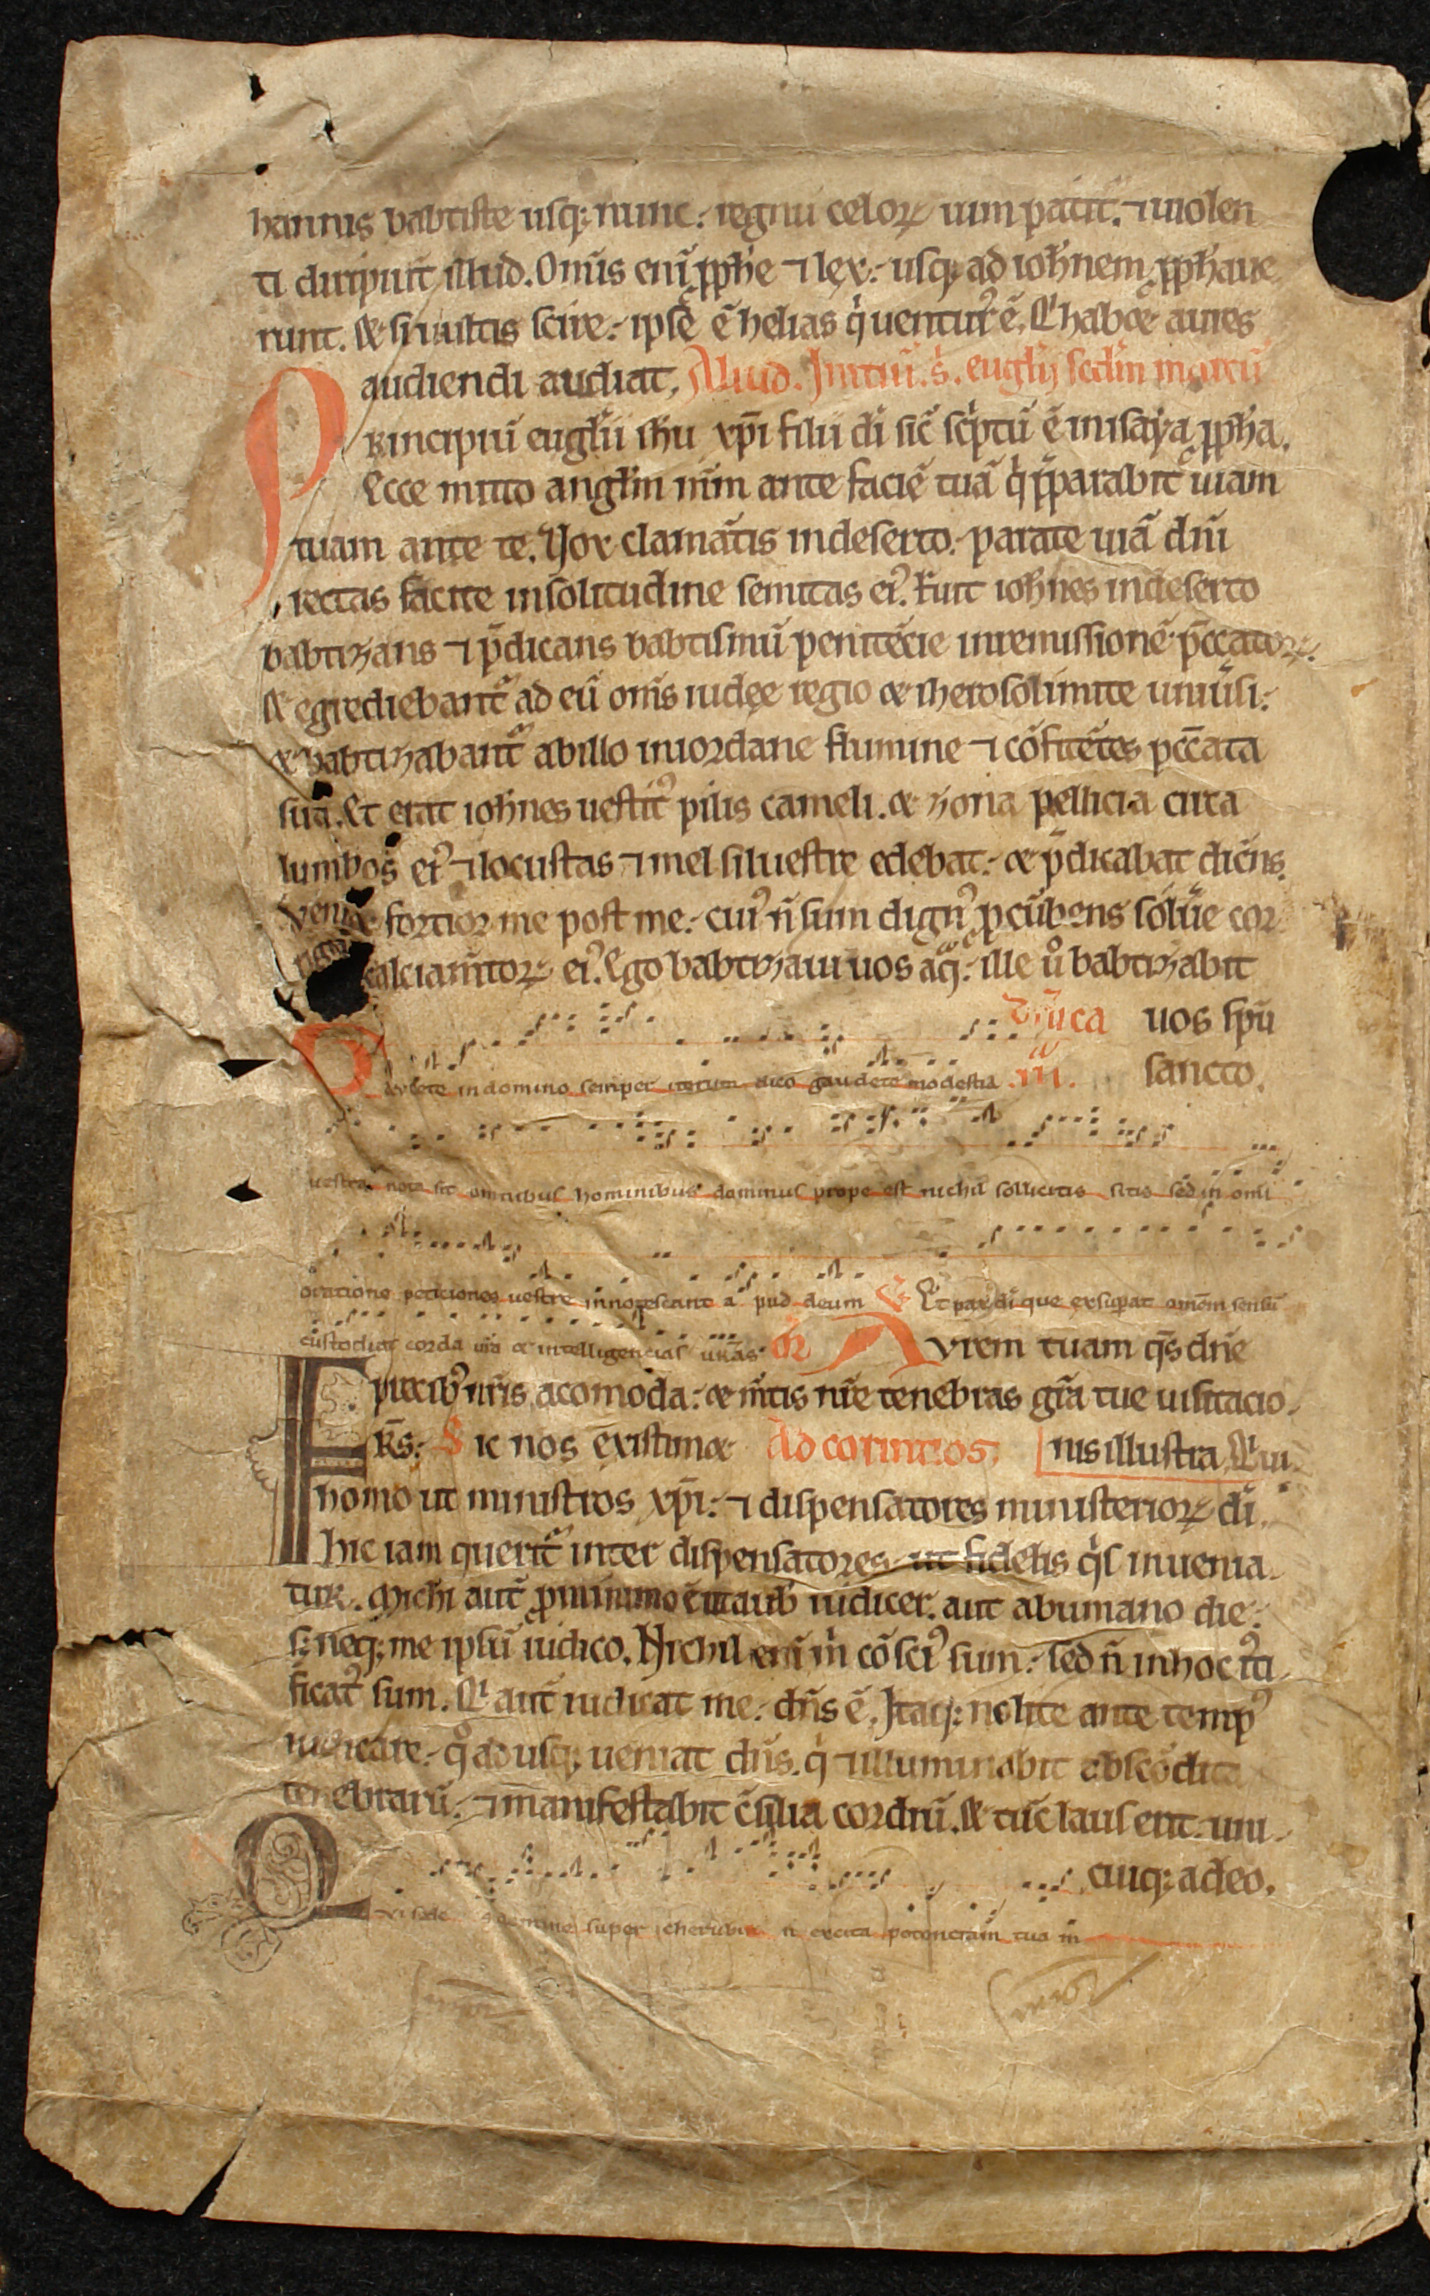 hannis babtiste usq; nunc. regnū celoꝝ uim patit̄. ⁊ uiolen
ti diripiut illud. Om̄s eni ꝓph̄e ⁊ lex. usq; ad ioh̄nem ꝓph̄aue
runt. & si uultis scire. ipse ē helias q̇ uentur᷒ ē. Q̇ habet aures
audiendi audiat. Aliud. Initiū. s̄. eugl̄ij scd̄m marcū
Principiū eugl̄ii ih̄u xp̄i filii dī sic̄ sc̄ptū ē in isaẏa ꝓph̄a.
Ecce mitto angl̄m m̄m ante faciē tuā q̇ p̄parabit uiam
tuam ante te. Vox clamātis in deserto. parate uiā dn̄i
rectas facite in solitudine semitas ei᷒. Fuit ioh̄nes in deserto
babtizans ⁊ p̄dicans babtismū penitēcie in remissionē pēccatoꝝ.
& egrediebant᷑ ad eū om̄s iudęe regio & iherosolimite uniūsi.
& babtizabant᷑ ab illo in iordane flumine ⁊ cōfitētes pc̄cata
sua. Et erat ioh̄nes uestit᷒ pilis cameli. & zona pellicia circa
lumbos ei᷒ ⁊ locustas ⁊ mel siluestre edebat. & p̄dicabat dicēns.
Venit fortior me post me. cui᷒ n̄ sum dign᷒ ꝓcūbens soluē cor
rigiā calciam̄toꝝ ei᷒. Ego babtizaui uos aq̄. ille ů babtizabit
uos spū
Gavdete in domino semper iterum dico gaudete modestia sancto.
uestra nota sit omnibus hominibus dominus prope est nichil solliciti sitis sed in omi
oratione peticiones uestre innotescant a pud deum Et pax dī que exsuperat omēm sensū
custodiat corda ura & intelligencias uras Or̄ Avrem tuam q̄s dn̄e
precib᷒ nr̄is acomoda. & m̄tis nr̄e tenebras gr̄a tue uisitacio
F R̄s. Sic nos existimet Ad corintios. nis illustra. Qui.
homo ut ministros xp̄i. ⁊ dispensatores ministerioꝝ dī.
hic iam querit᷑ inter dispensatores ut fidelis q̇s inuenia
tur. Michi aut̄ ꝓ minimo ē ut a uob iudicer. aut ab umano die.
s; neq; me ipsū iudico. Nichil eni m̄ cōsci᷒ sum. sed n̄ in hoc iti
ficat᷒ sum. Q̇ aut̄ iudicat me. dn̄s ē. Itaq; nolite ante temp᷒
iudicare. q̊ adusq; ueniat dn̄s. q̇ ⁊ illuminabit abscōdita
tenebrarū. ⁊ manifestabit c̄silia cordiū. & tūc laus erit. uni
cuiq; a deo.
Qvi sedes domine super cherubin excita potenciam tua